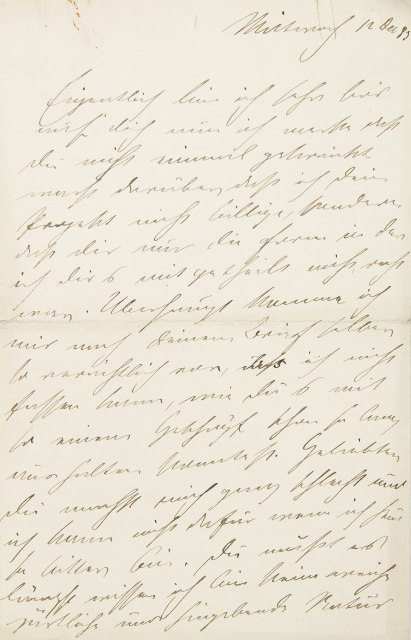 Mittwoch 12 Dec 93
Eigentlich bin ich sehr bös
auf dich nun ich merke daß
du nicht einmal gekränkt
darüber, daß ich dein
Projekt nicht billige, sondern
daß dir nur die Form in der
ich dir's mitgetheilt nicht recht
war. Überhaupt komme ich
mir nach deinem Brief selber
so verächtlich vor, daß ich nicht
fassen kann, wie du's mit
so einem Geschöpf schon so lang
aushalten konntest. Geliebter
du machst mich ganz schlecht und
ich kann nicht dafür wenn ich
so bitter bin. Du mußt es
längst wissen ich bin keine weiche
zärtliche und hingebende Natur